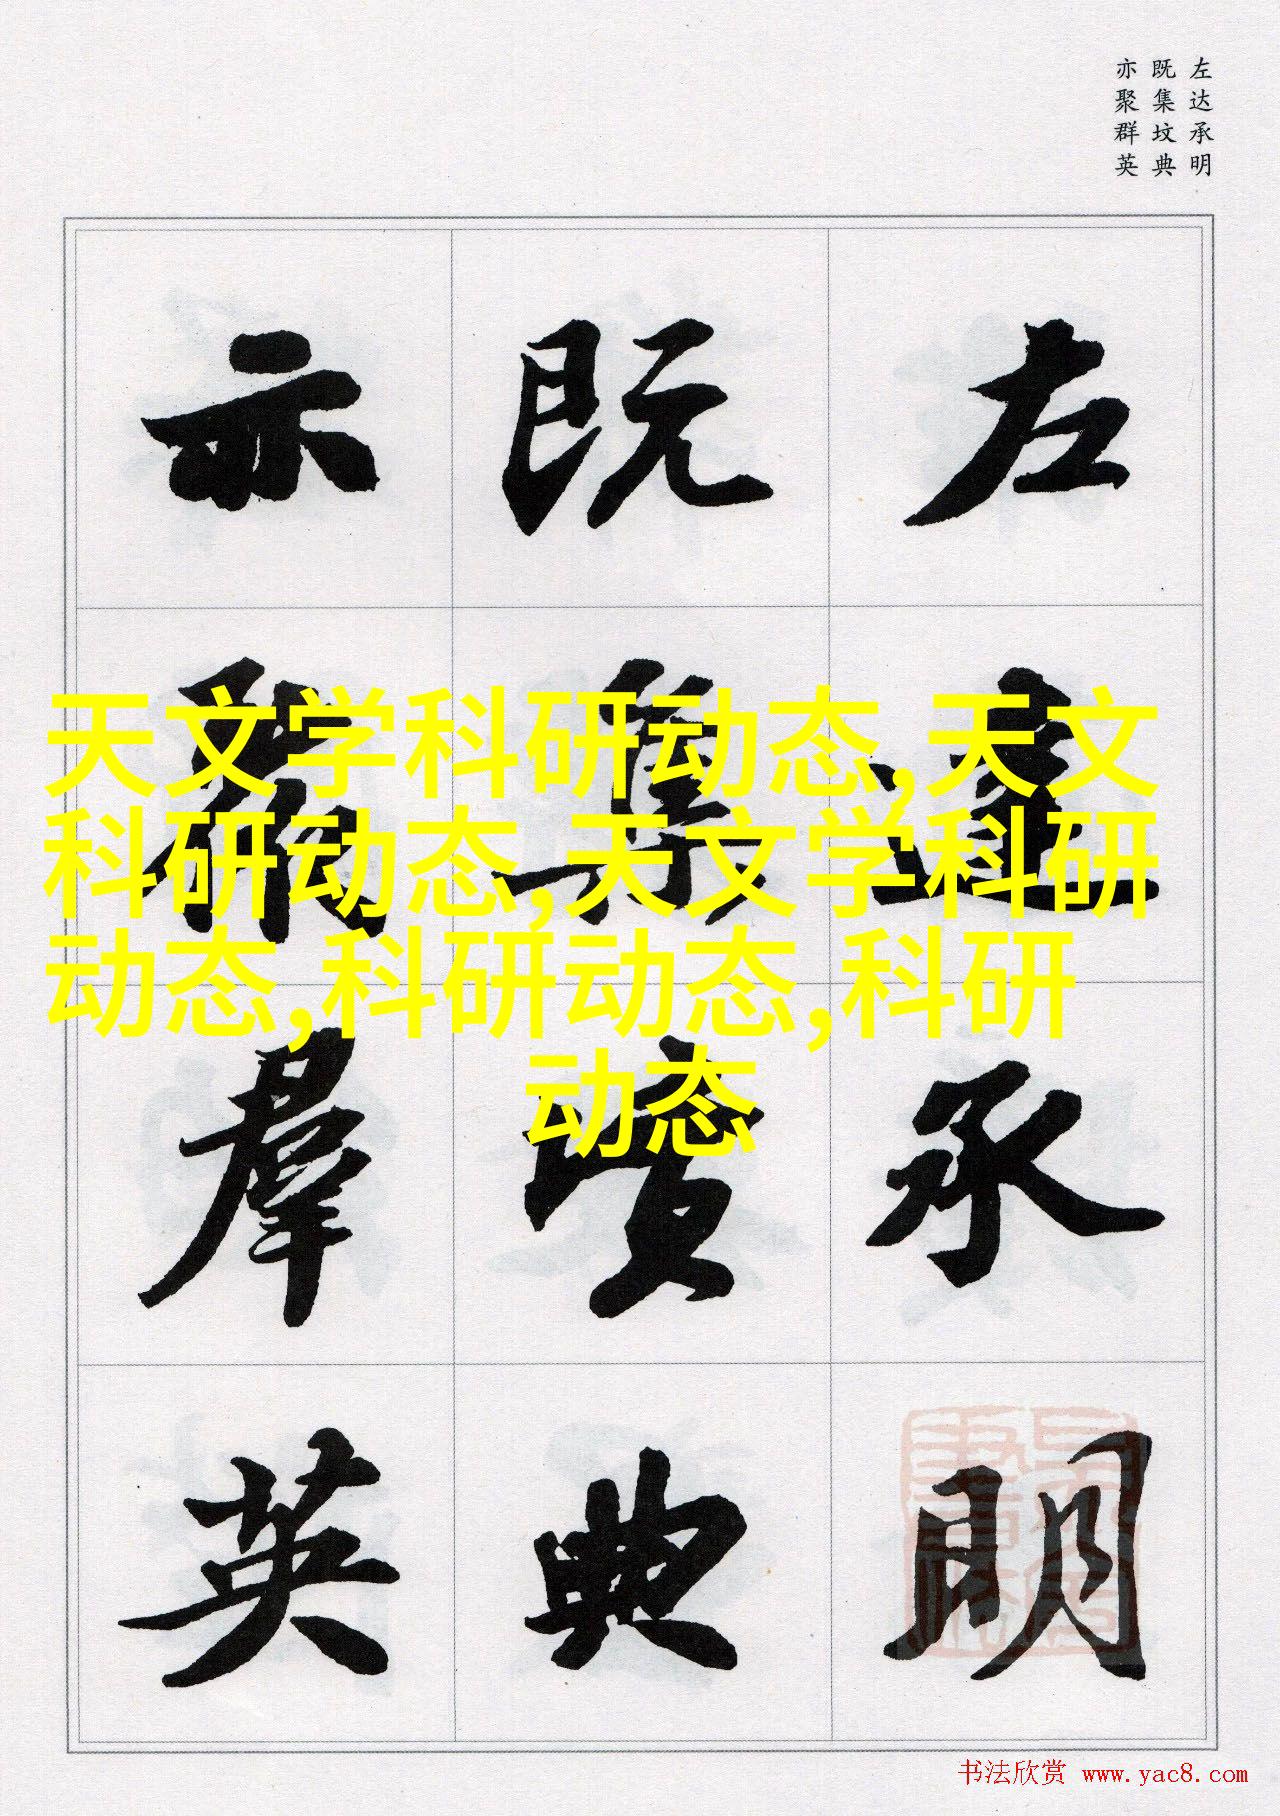 左达承明
既集坟典
亦聚群英
左達承明
既集墳典
亦聚羣英
天文学科研动态,天文
科研动态,天文学科研
动态,科研动态,科研
动态
书法欣赏 www.yac8.com